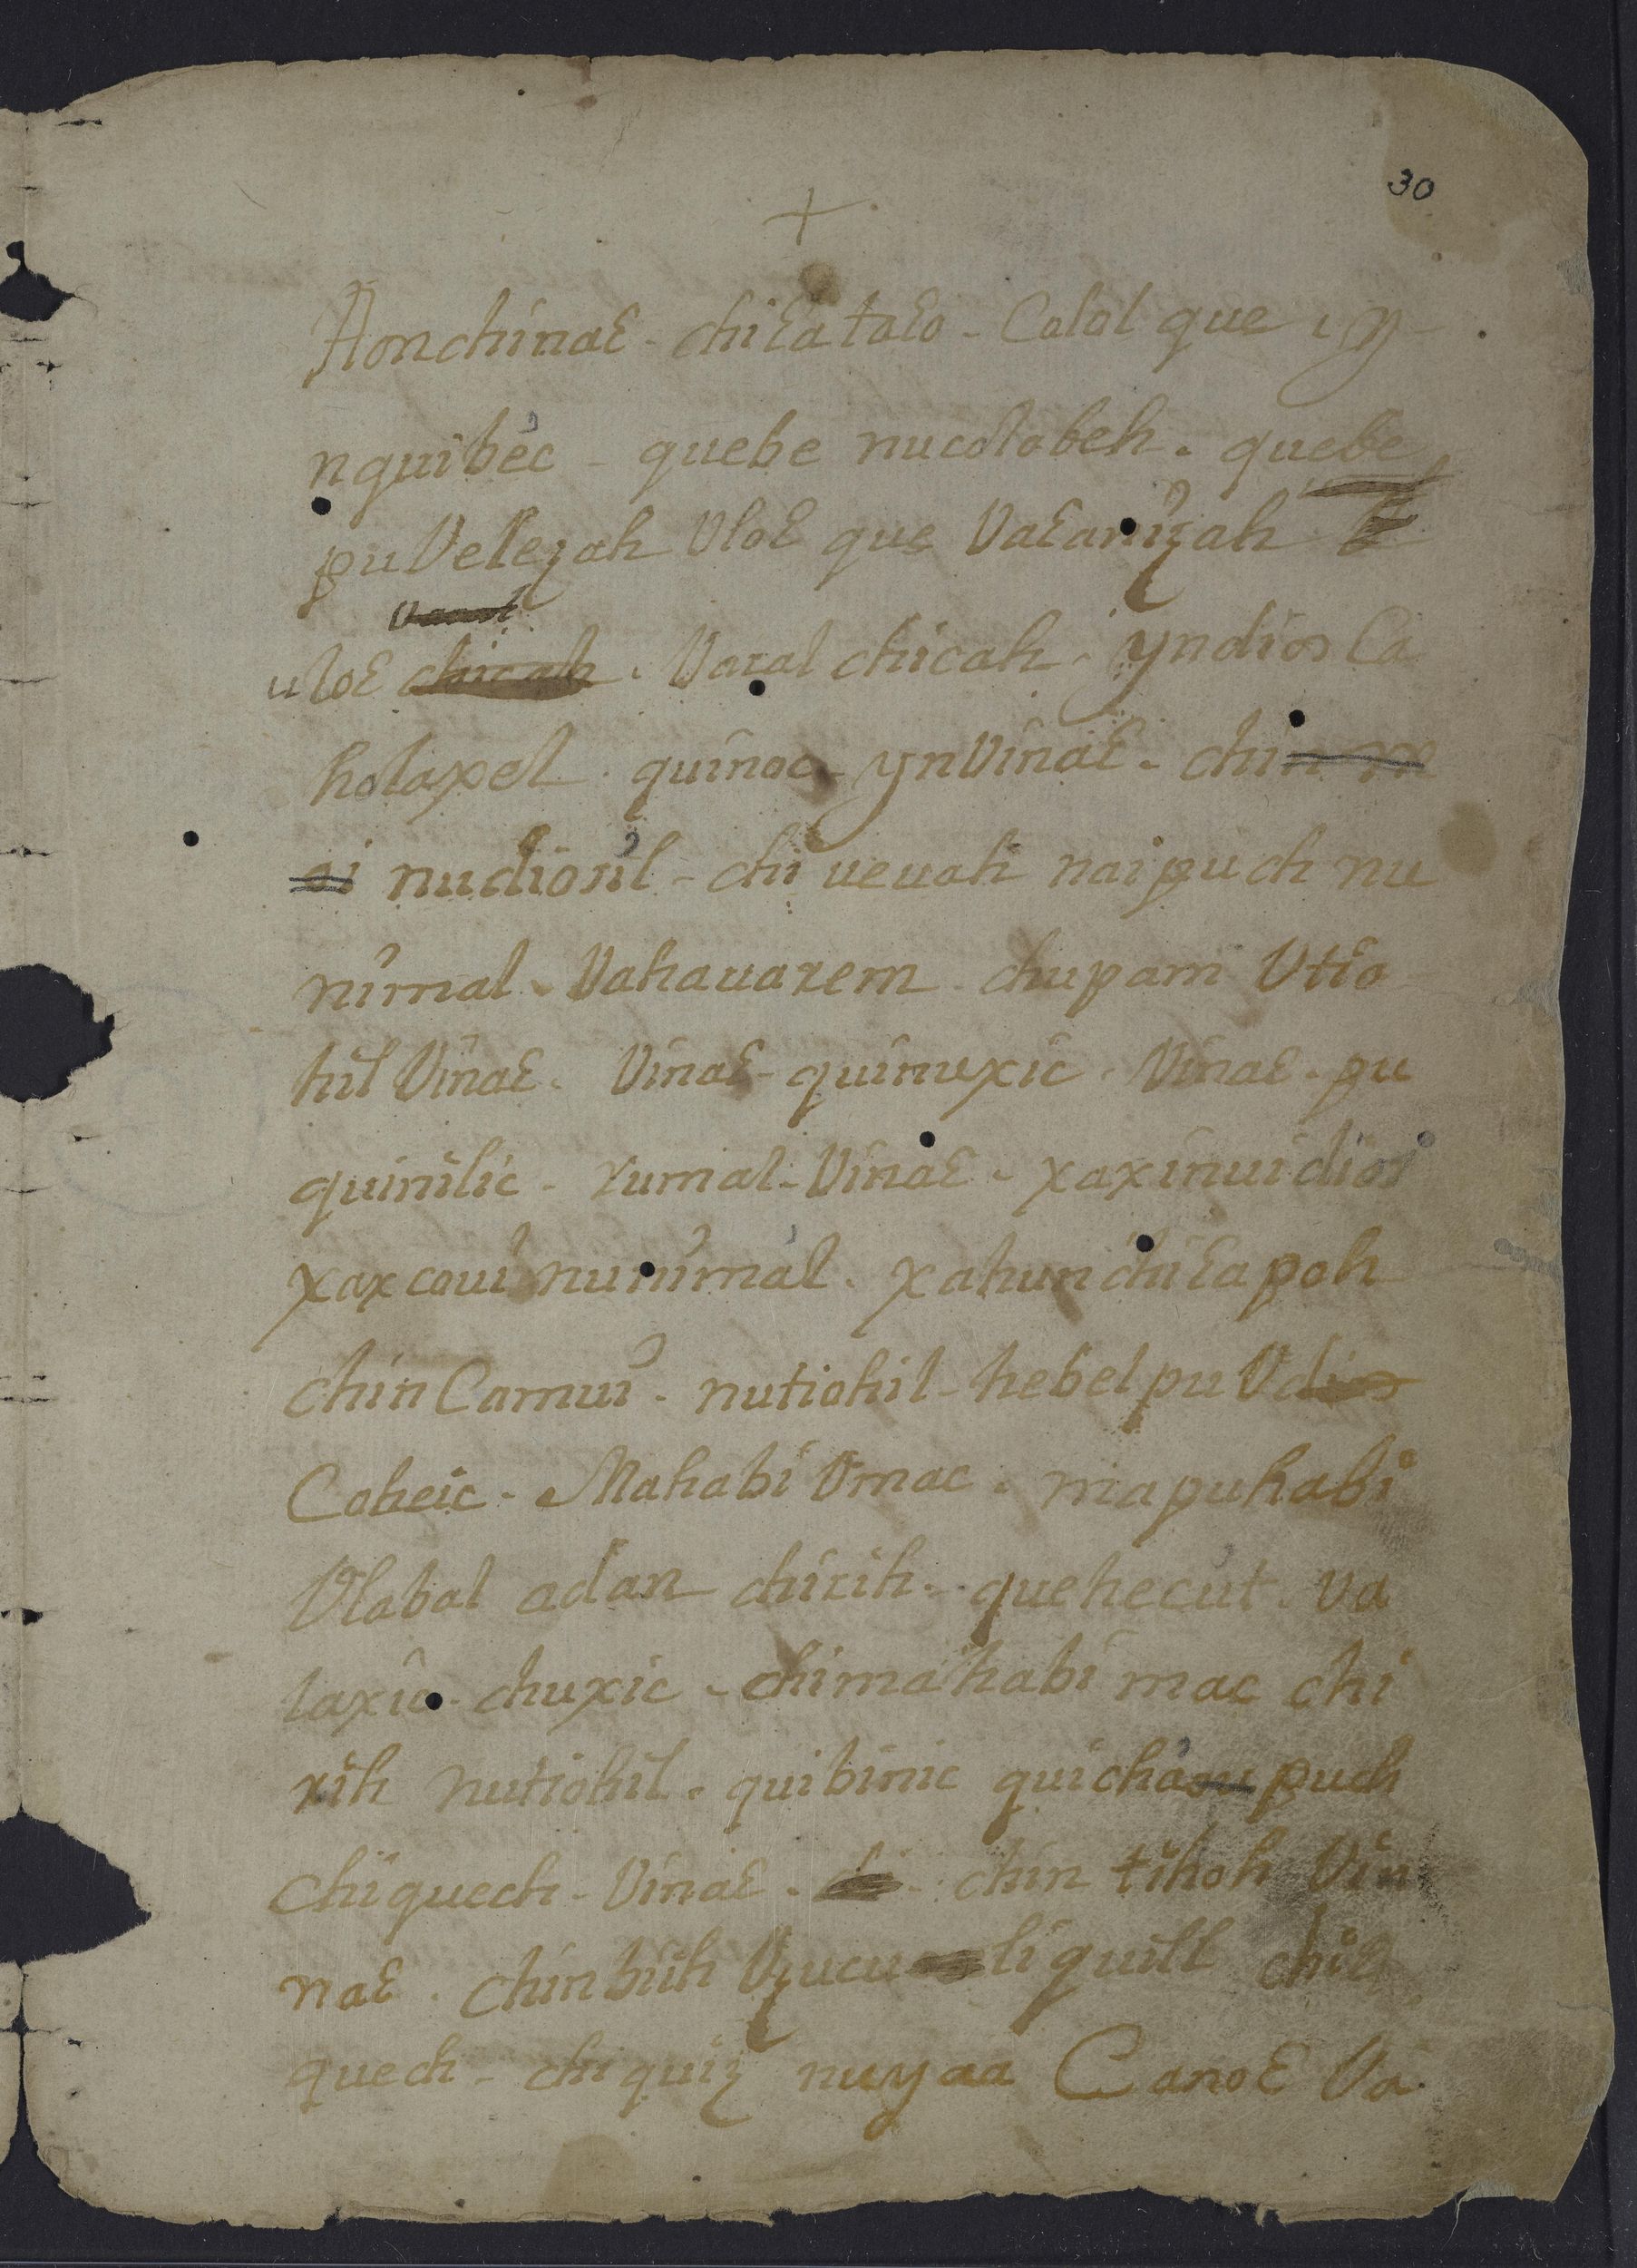 30
+
Honchinaɛ - chiɛataɛo - Calal que , yy -
nquibec - quebe nucolobeh . quebe
pu Velezah Vloɛ que Vaɛanizah
uloɛ chicah . Varal chicah . yndios Ca
holaxel . quinoc - ynVinaɛ - chin m
ai nudiosil - chi ueuah nai puch nu
nimal . Vahauarem . chupam Vtio
hil Vinaɛ . Vinaɛ - quinuxic . Vinaɛ . pu
quinilic . rumal - Vinaɛ - xaxinuidios
xaxcaui nunimal . xahun chiɛapoh
chin Camui . nutiohil - hebel pu Vdios
Coheic . Mahabi Vmac . mapuhabi
Vlabal adan chirih . quehecut . Va
laxic . chuxic - chimahabi mac chi
rih nutiohil . quibinic quichau puch
chiquech - Vinaɛ . chi - chin tihoh Vin
naɛ . chinbiih Vzucu liquill chiɛ
quech - chi quiz nuyaa Canoɛ Va